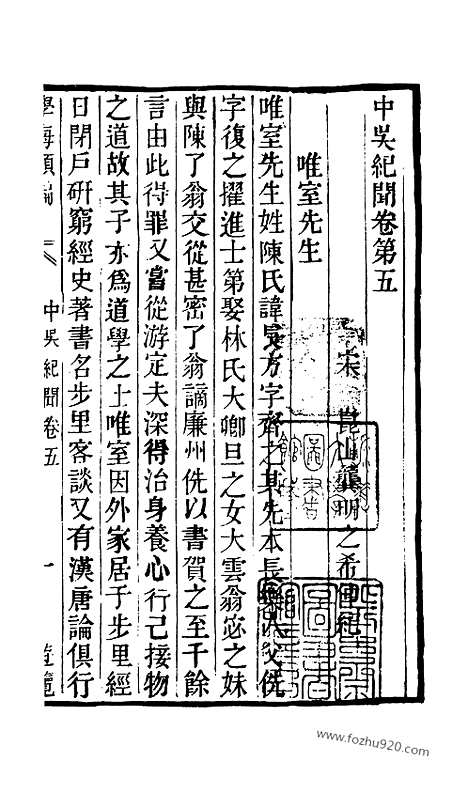 中吳紀聞卷第五
宋 崑山龔明之希仲紀
唯室先生
唯室先生姓陳氏諱長方字齊之其先本長樂人父侁
字復之擢進士第娶林氏大卿旦之女大雲翁宓之妹
與陳了翁交從甚密了翁謫廉州侁以書賀之至千餘
言由此得罪又嘗從游定夫深得治身養心行己接物
之道故其子亦爲道學之士唯室因外家居于步里經
日閉戸硏窮經史著書名步里客談又有漢唐論俱行
學海類編 中吳紀聞卷五 一 遊覽
www.fozhu920.com